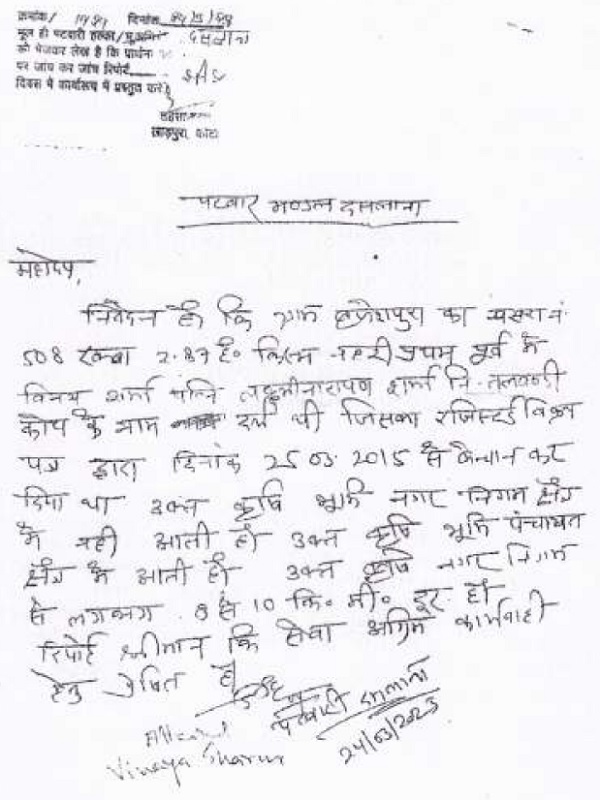 क्रमांक/ 1981 दिनांक
मूल ही पटवारी हल्का/भू.अभि. दसलाना
को भेजकर लेख है कि प्रार्थना
पर जांच कर जांच रिपोर्ट
दिवस में कार्यालय में प्रस्तुत करें
लाडपुरा, कोटा
पटवार मण्डल दसलाना
महोदय,
निवेदन है कि ग्राम ब्रजेशपुरा का खसरा नं.
508 रकबा 2.87 है० किस्म नहरी प्रथम पूर्व में
विनय शर्मा पत्नि लक्ष्मीनारायण शर्मा नि. तलवण्डी
कोटा के नाम दर्ज थी जिसका रजिस्टर्ड विक्रय
पत्र द्वारा दिनांक 25.03.2015 से बैचान कर
दिया था उक्त कृषि भूमि नगर निगम क्षेत्र
मे नही आती है। उक्त कृषि भूमि पंचायत
क्षेत्र मे आती है। उक्त कृषि नगर निगम
से लगभग 8 से 10 कि० मी० दूर है।
रिपोर्ट श्रीमान कि सेवा अग्रिम कार्यवाही
हेतु प्रेषित है।
पटवारी दसलाना
24/03/2025
Attested
Vinaya Sharma